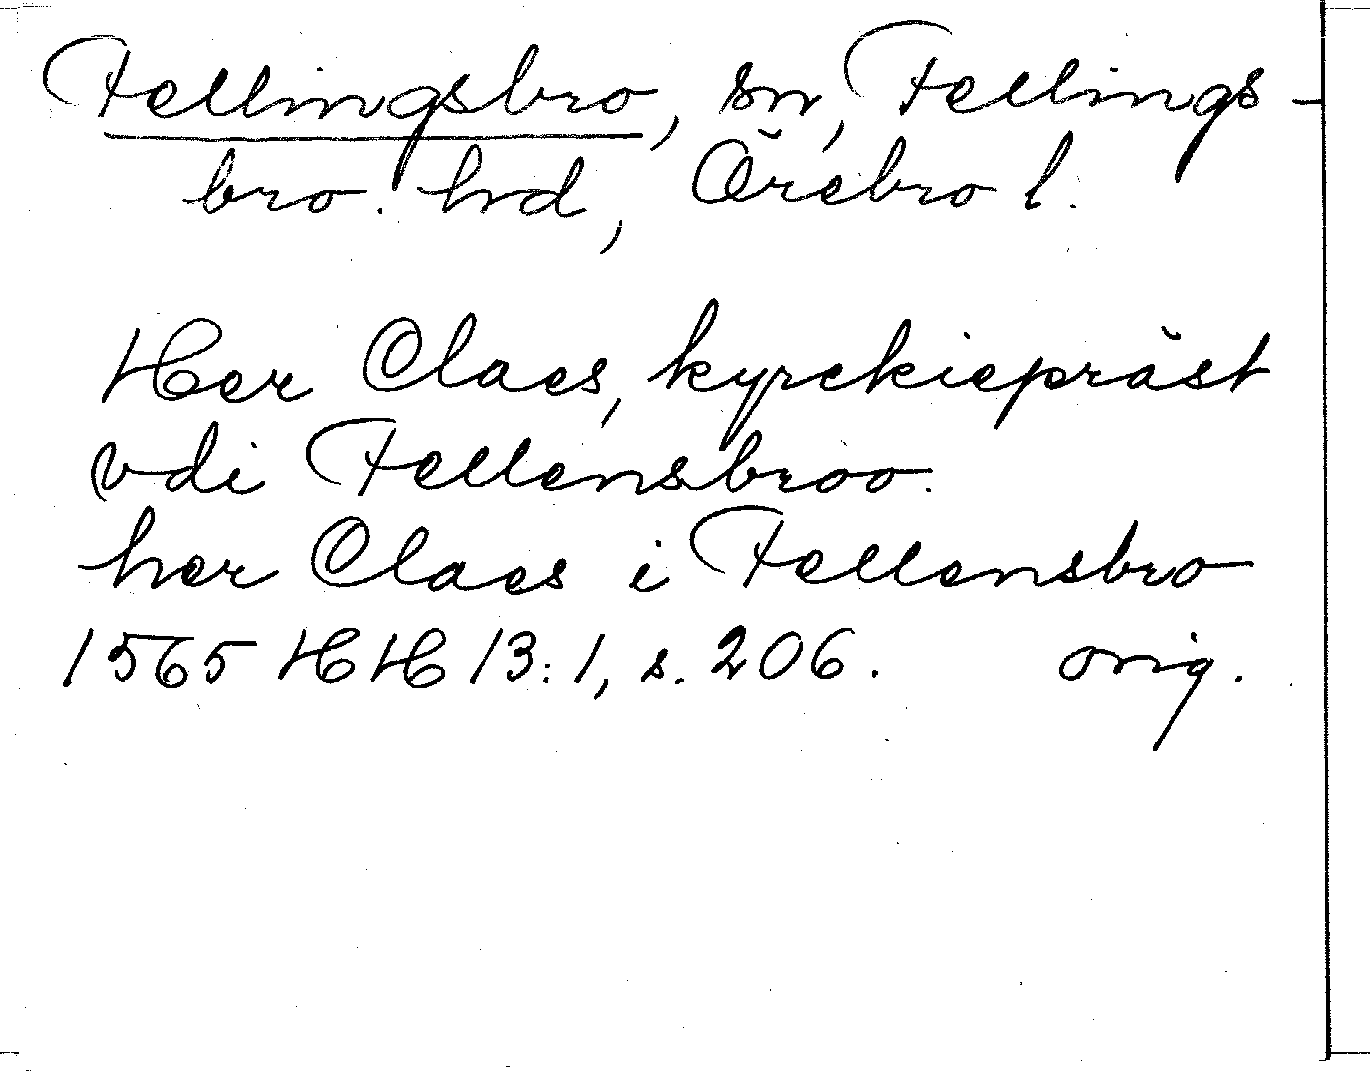 Fellingsbro, sn, Fellings-
bro. hrd, Örebro l.
Her Claes, kyrckiepräst
vdi Fellensbroo.
her Claes i Fellensbro
1565 HH 13:1, s. 206. orig.